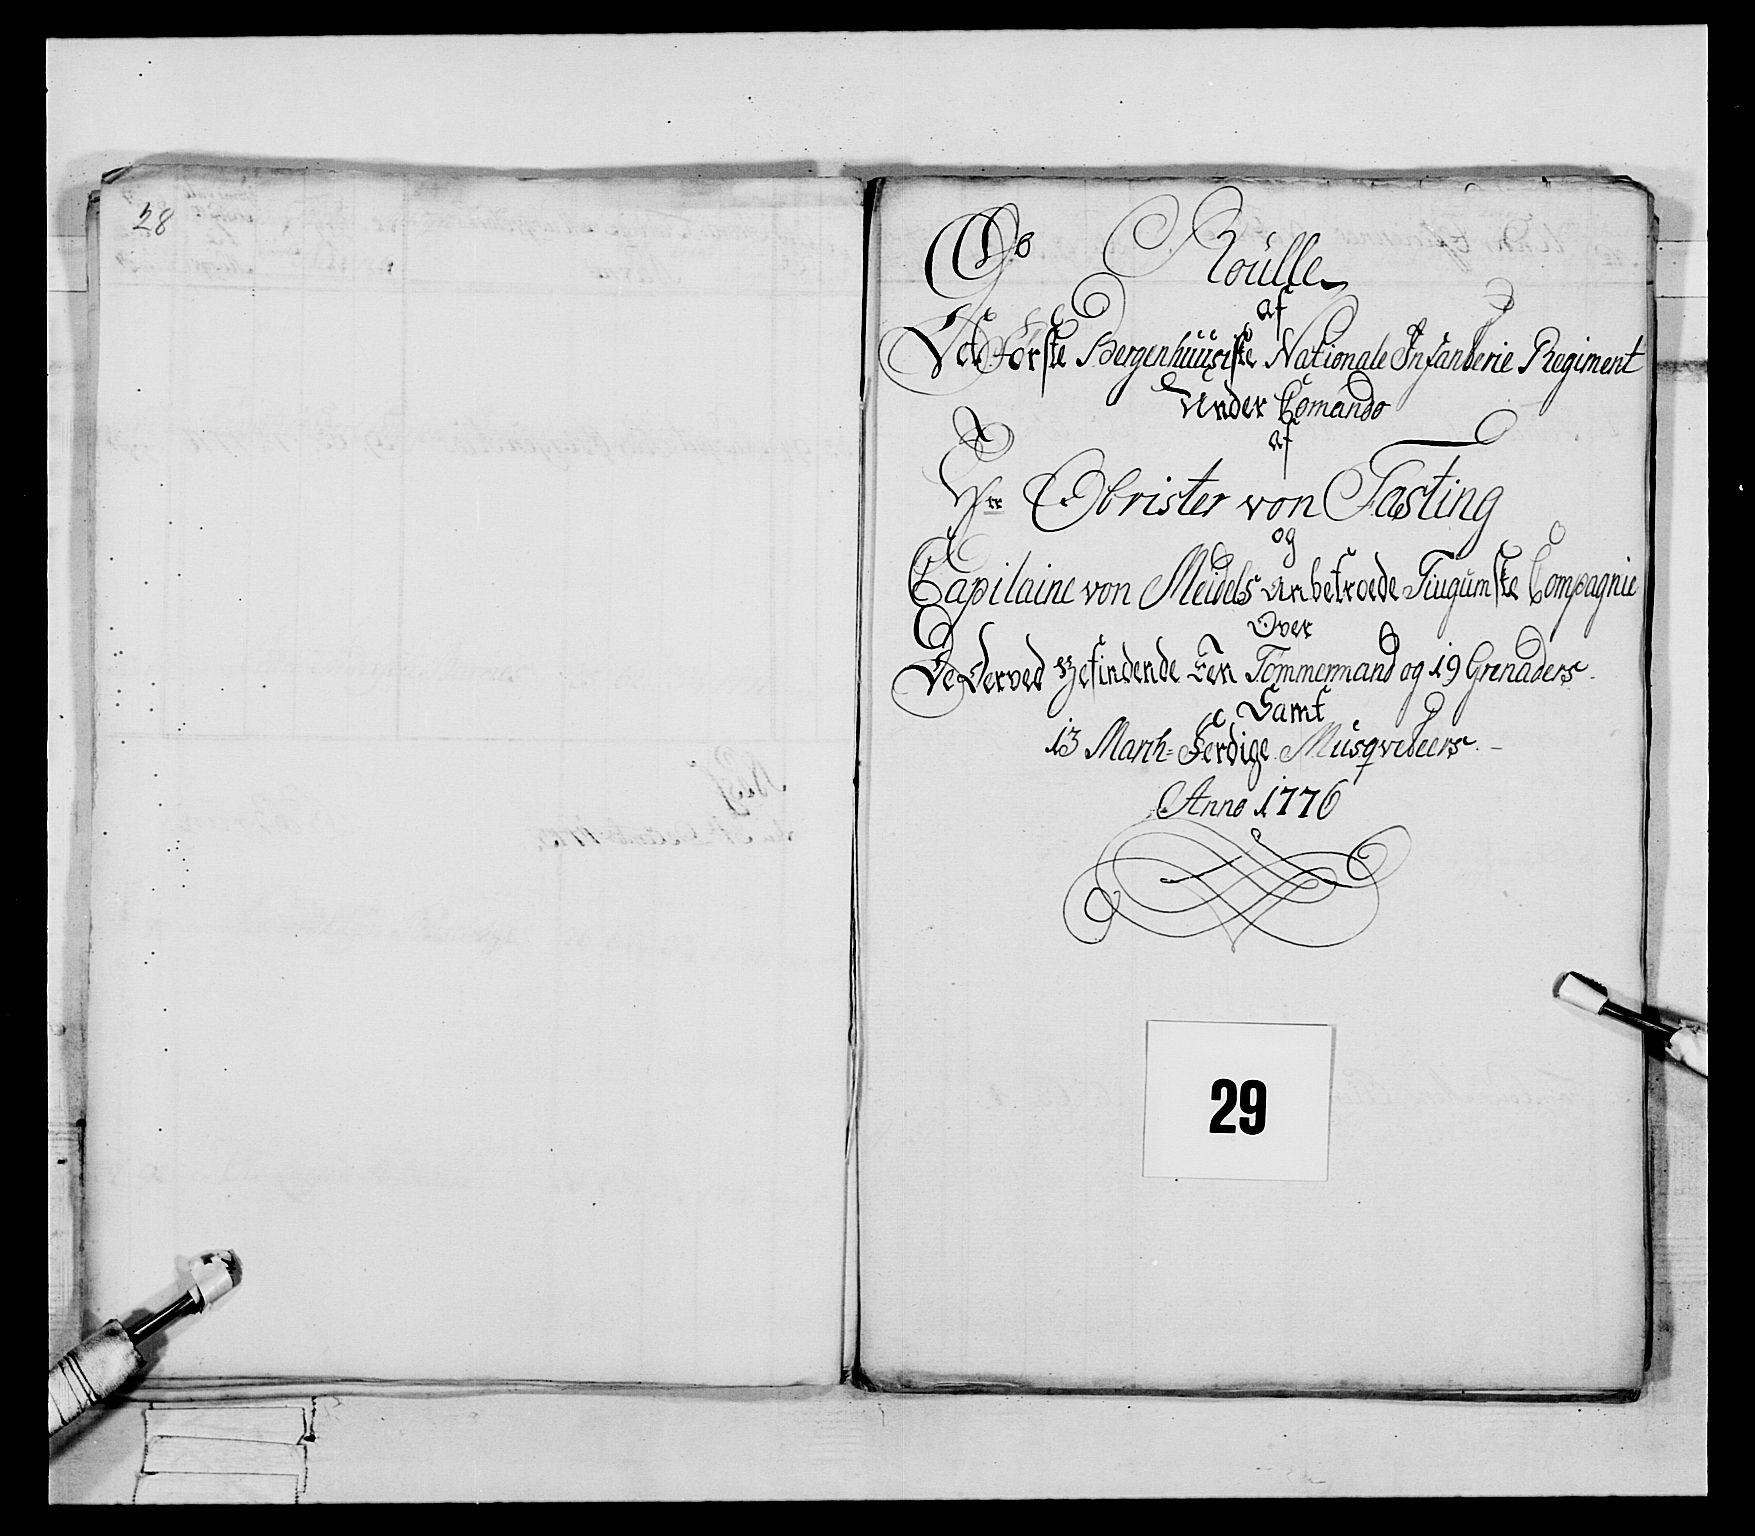 28
No Roülle
af
Det Første Bergenhüüsiske Nationale Infanterie Regiment
Under Comando
af
Hrr Obrister von Fasting
og
Capitaine von Meidels anbetroede Fiugumske Compagnie
Over
De Derved Befindende Een Tömmermand og 19 Grenaders.
Samt
13 March=Ferdige Musqveteers.
Anno 1776
29